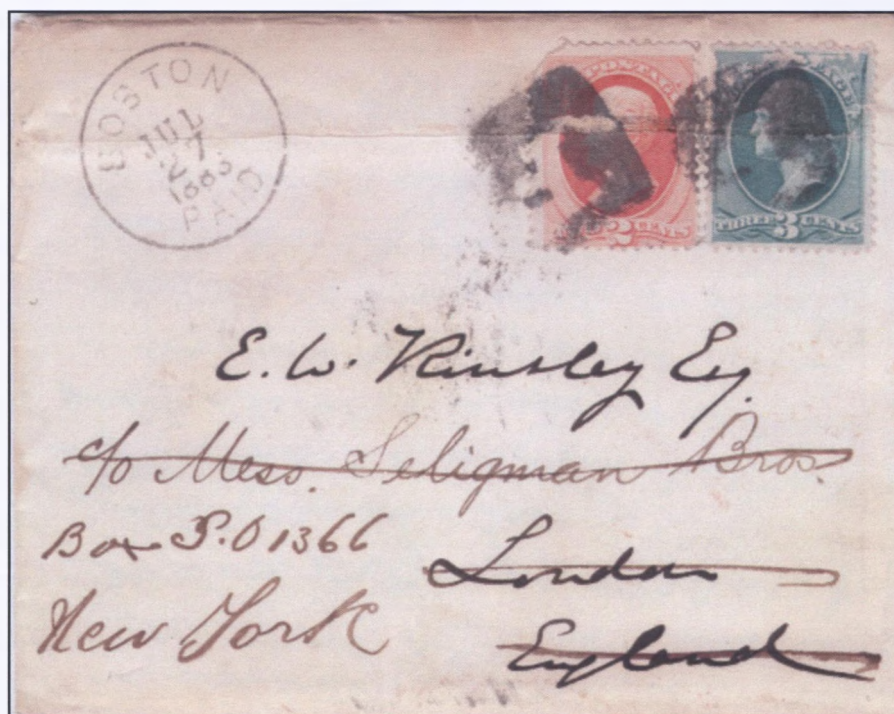 BOSTON
JUL
27
1883
PAID
POSTAGE
2 CENTS
THREE 3 CENTS
E. W. Kinsley Esq.
c/o Mess. Seligman Bros.
Box P.O 1366
London
New York
England